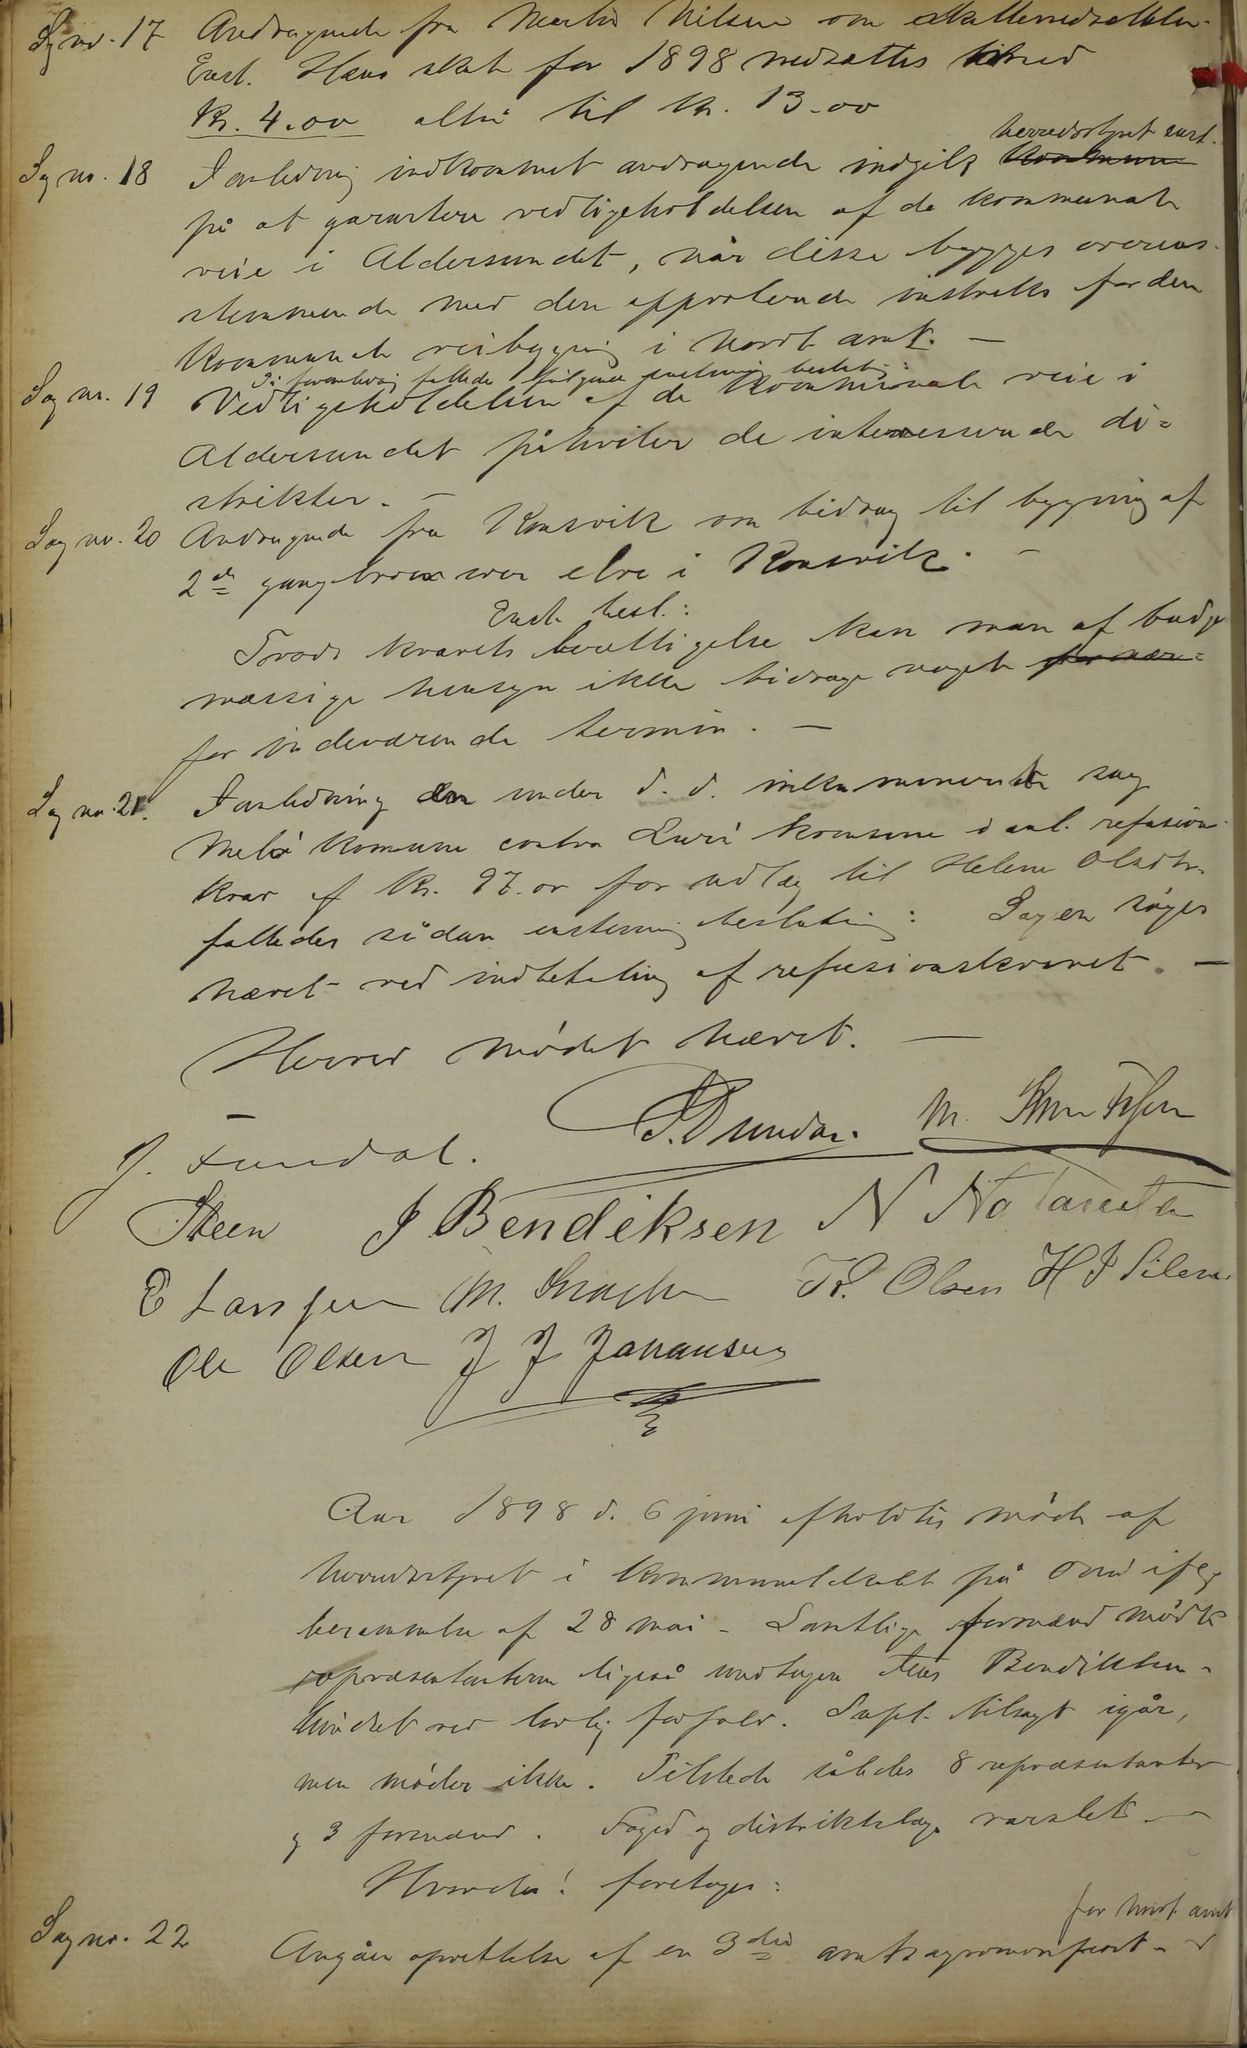 Sag nr. 17 Andragende fra Martin Nilsen om skattenedsættelse.
Enst. Hans skat for 1898 nedsættes med
kr. 4.00 altså til kr. 13.00
herredsstyret enst.
Sag nr. 18 I anledning indkommet andragende indgik
på at garantere vedligeholdelsen af de kommunale
veie i Aldersundet, når disse bygges overens-
stemmende med den approberede instruks for den
kommunale veibygning i Nordl. amt. —
I forbindelse fattedes følgende enstemmig beslutning:
Sag nr. 19 Vedligeholdelsen af de kommunale veie i
Aldersundet påhviler de interesserende di-
strikter. —
Sag nr. 20 Andragende fra Konsvik om bidrag til bygning af
2de gangbroer over elve i Konsvik. —
Enst. besl.:
Trods kravets berettigelse kan man af budget-
mæssige hensyn ikke bidrage noget
for indeværende termin. —
Sag nr. 21. I anledning under d. d. sag
Melø kommune contra Lurø kommune i anl. refusions-
krav af kr. 97.00 for udlæg til Helene Olsdtr.
fattedes sådan enstemmig beslutning: Sagen søges
hævet ved indbetaling af refusionskravet. —
Herved mødet hævet. —
J. Fundal. P. Dundas. M.
Steen J Bendiksen N
E Larssen M. K. Olsen H J Silen
Ole Olsen J J Johansen
Aar 1898 d. 6 juni afholdtes møde af
herredsstyret i kommunelokalet på Onø ifølge
berammelse af 28 mai. Samtlige formænd mødte
repræsentanterne ligeså undtagen Bendiksen
hindret ved lovlig forfald. Supl. tilsagt igår,
men møder ikke. Tilstede således 8 repræsentanter
og 3 formænd. Foged og distriktslæge varslet. —
Hvorda! foretoges:
for Nord. amt
Sag nr. 22 Angåen oprettelse af en 3die amtsagronompost.